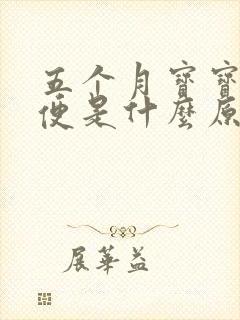 五个月寶寶
便是什麼原
展華益